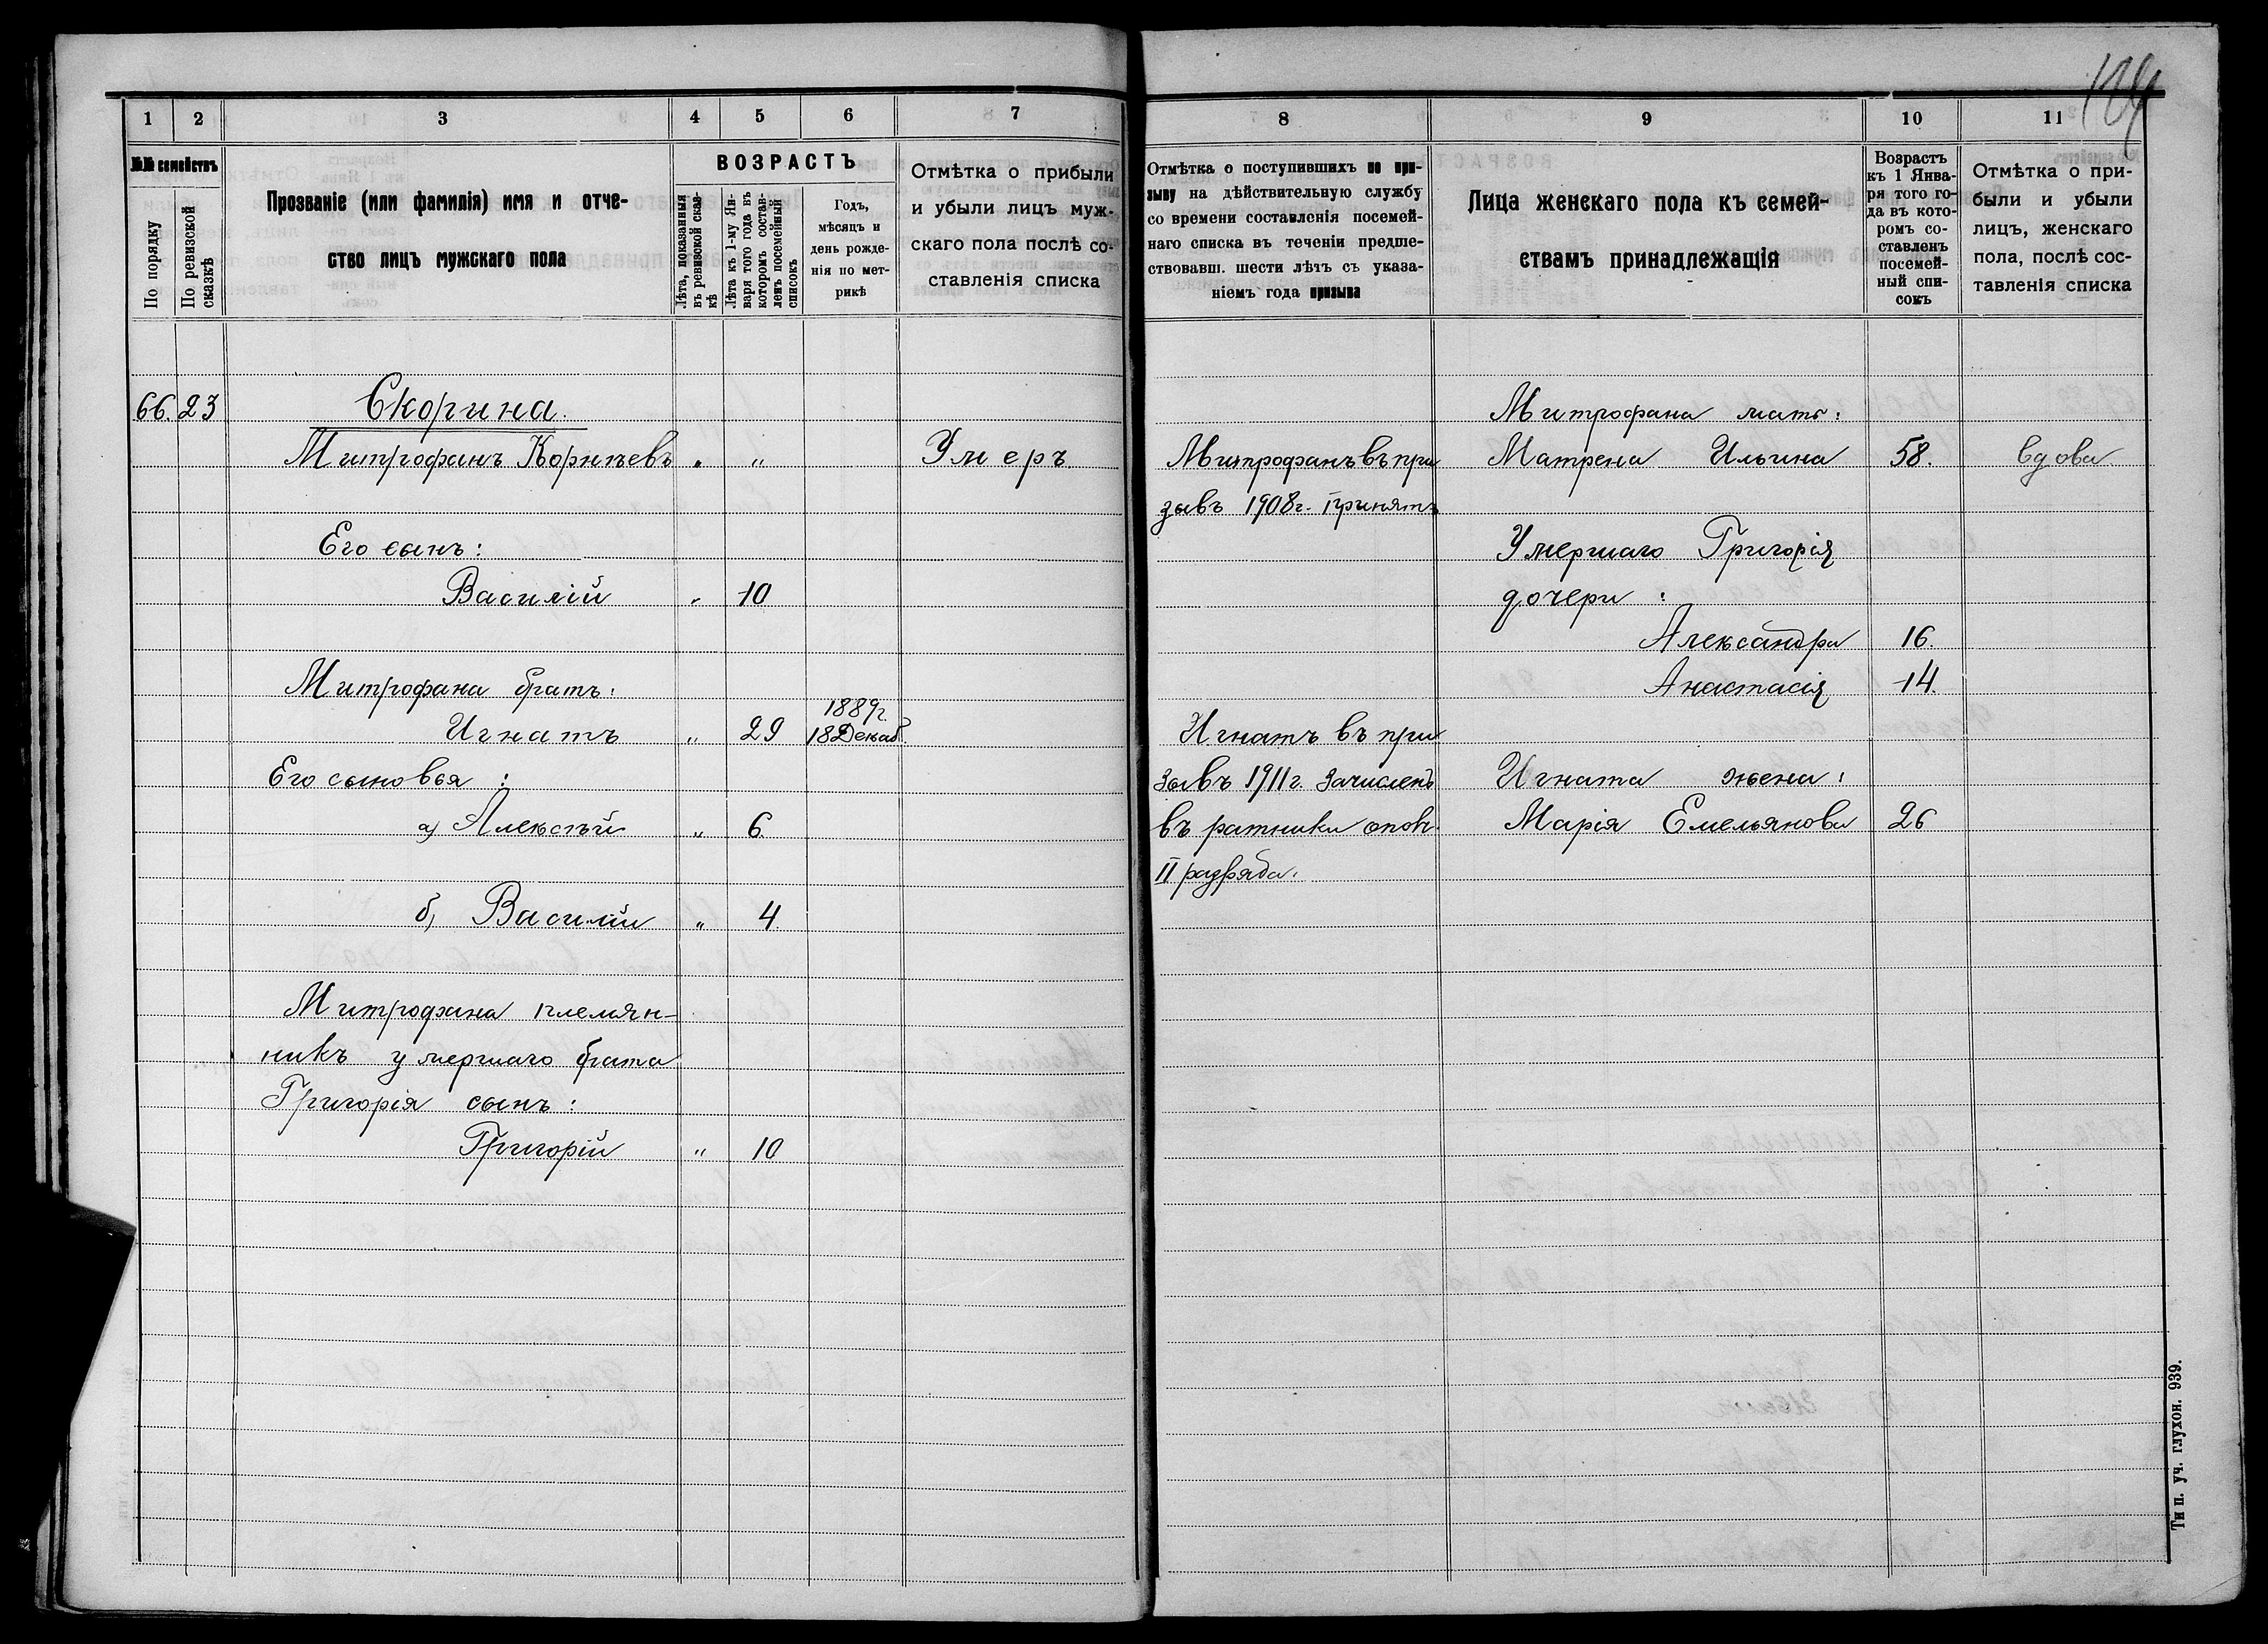 1 2 3 4 5 6 7
№№ семействъ
По порядку
По ревизской сказкѣ
Прозваніе (или фамилія) имя и отче-
ство лицъ мужскаго пола
ВОЗРАСТЪ
Лѣта, показанныя
въ ревизской сказ-
кѣ
Лѣта къ 1-му Ян-
варя того года къ
которомъ состав-
ленъ посемейный
списокъ
Годъ,
мѣсяцъ и
день рожде-
нія по мет-
рикѣ
Отмѣтка о прибыли
и убыли лицъ муж-
скаго пола послѣ со-
ставленія списка
66. 23 Скорина.
Митрофанъ Корнѣевъ " " Умеръ
Его сынъ:
Василій " 10
Митрофана братъ:
1889г.
Игнатъ " 29 18 Декаб.
Его сыновья:
а) Алексѣй " 6.
б) Василій " 4.
Митрофана племян-
никъ умершаго брата
Григорія сынъ:
Григорій " 10
8 9 10 11
Отмѣтка о поступившихъ по при-
зыву на дѣйствительную службу
со времени составленія посемей-
наго списка въ теченіи предше-
ствовавш. шести лѣтъ съ указа-
ніемъ года призыва
Лица женскаго пола къ семей-
ствамъ принадлежащія
Возрастъ
къ 1 Янва-
ря того го-
да въ кото-
ромъ со-
ставленъ
посемей-
ный спи-
сокъ
Отмѣтка о при-
были и убыли
лицъ, женскаго
пола, послѣ сос-
тавленія списка
Митрофана мать:
Митрофанъ въ при Матрена Ильина 58. вдова
зывъ 1908г. принятъ
Умершаго Григорія
дочери:
Александра 16.
Анастасія 14.
Игнатъ въ при
зывъ 1911г. зачисленъ Игната жена:
въ ратники опол. Марія Емельянова 26
II разряда.
Тип. уч. глухон. 939.